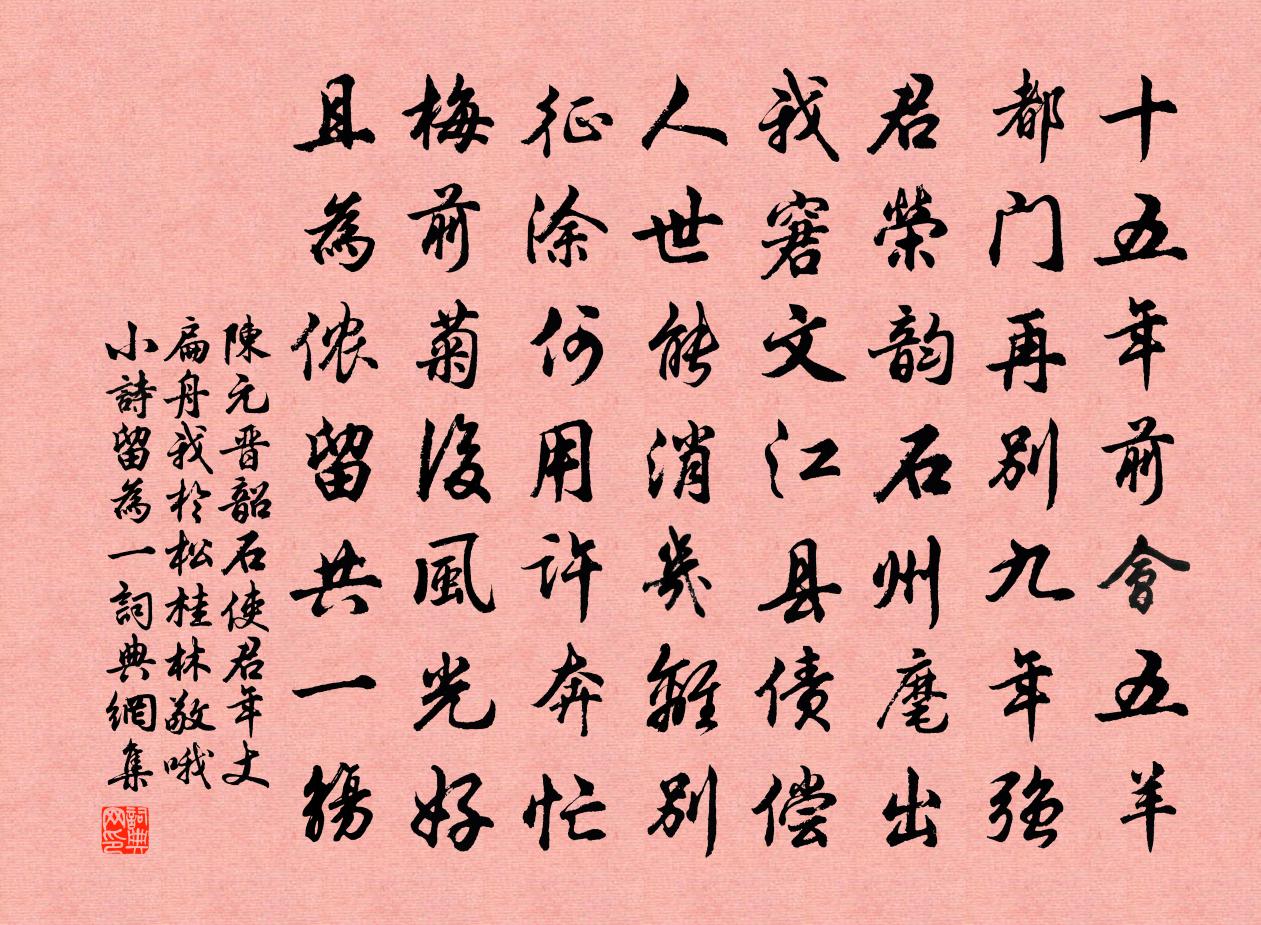 十五年前會五羊
都门再别九年强
君榮韵石州麾出
我窘文江县债偿
人世能消幾離别
征涂何用许奔忙
梅前菊後風光好
且為侬留共一觞
陳元晋韶石使君年丈
扁舟我於松桂林敬哦
小詩留為一詞典網集
詞典
网印